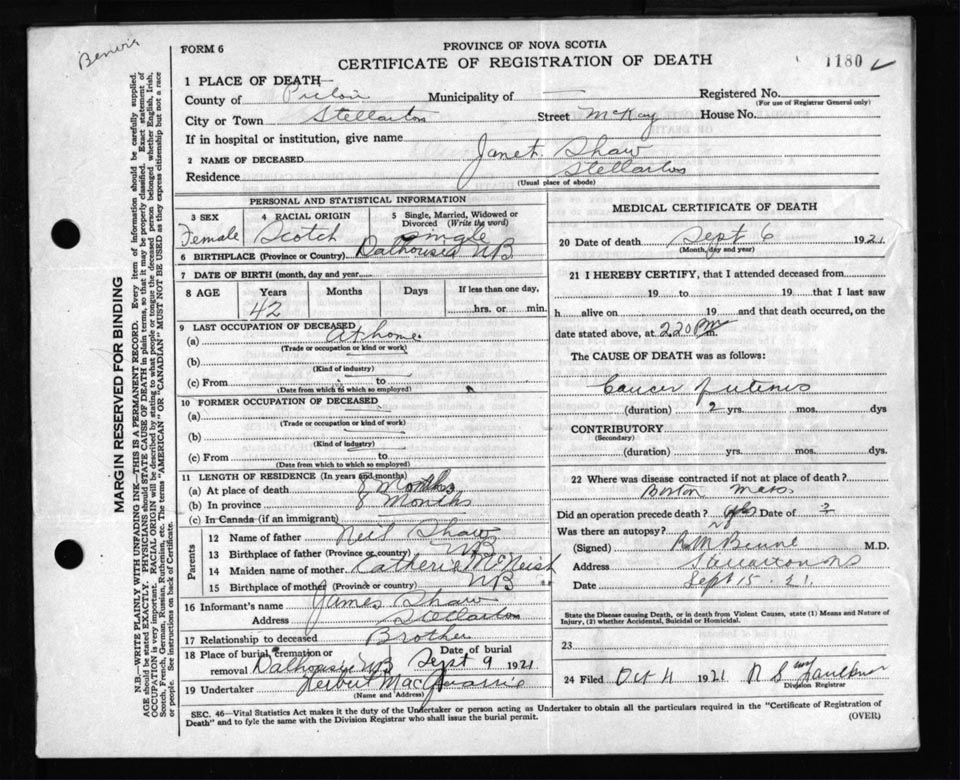 Benvie
FORM 6
PROVINCE OF NOVA SCOTIA
CERTIFICATE OF REGISTRATION OF DEATH
1180
MARGIN RESERVED FOR BINDING
N.B.—WRITE PLAINLY WITH UNFADING INK—THIS IS A PERMANENT RECORD. Every item of information should be carefully supplied.
AGE should be stated EXACTLY. PHYSICIANS should STATE CAUSE OF DEATH in plain terms, so that it may be properly classified. Exact statement of
OCCUPATION is very important. RACIAL ORIGIN will be described by stating to what people or tongue the deceased person belonged whether English, Irish,
Scotch, French, German, Russian, Ruthenian, etc. The terms "AMERICAN" OR "CANADIAN" MUST NOT BE USED as they express citizenship but not a race
or people. See instructions on back of Certificate.
1 PLACE OF DEATH—
County of Pictou Municipality of — Registered No.
(For use of Registrar General only)
City or Town Stellarton Street McKay House No.
If in hospital or institution, give name
2 NAME OF DECEASED Janet Shaw
Residence Stellarton
(Usual place of abode)
PERSONAL AND STATISTICAL INFORMATION
3 SEX Female
4 RACIAL ORIGIN Scotch
5 Single, Married, Widowed or Divorced (Write the word) Single
6 BIRTHPLACE (Province or Country) Dalhousie NB
7 DATE OF BIRTH (month, day and year)
8 AGE Years 42 Months Days If less than one day, hrs. or min.
9 LAST OCCUPATION OF DECEASED
(a) At home
(Trade or occupation or kind or work)
(b)
(Kind of industry)
(c) From to
(Date from which to which so employed)
10 FORMER OCCUPATION OF DECEASED
(a)
(Trade or occupation or kind of work)
(b)
(Kind of industry)
(c) From to
(Date from which to which so employed)
11 LENGTH OF RESIDENCE (In years and months)
(a) At place of death 8 Months
(b) In province 8 Months
(c) In Canada (if an immigrant)
Parents
12 Name of father Neil Shaw
13 Birthplace of father (Province or country) NB
14 Maiden name of mother Katherine McNeish
15 Birthplace of mother (Province or country) NB
16 Informant's name James Shaw
Address Stellarton
17 Relationship to deceased Brother
18 Place of burial, cremation or removal Dalhousie NB Date of burial Sept 9 1921
19 Undertaker Herbert MacQuarrie
(Name and Address)
MEDICAL CERTIFICATE OF DEATH
20 Date of death Sept 6 1921
(Month, day and year)
21 I HEREBY CERTIFY, that I attended deceased from
19 to 19 that I last saw
h alive on 19 and that death occurred, on
date stated above, at 2 20 PM m.
The CAUSE OF DEATH was as follows:
Cancer of uterus
(duration) 2 yrs. mos. dys
CONTRIBUTORY
(Secondary)
(duration) yrs. mos. dys.
22 Where was disease contracted if not at place of death?
Boston Mass
Did an operation precede death? yes Date of ?
Was there an autopsy? no
(Signed) M.D.
Address Stellarton NS
Date Sept 15. 21.
State the Disease causing Death, or in death from Violent Causes, state (1) Means and Nature of
Injury, (2) whether Accidental, Suicidal or Homicidal.
23
24 Filed Oct 4 1921
Division Registrar
SEC. 46—Vital Statistics Act makes it the duty of the Undertaker or person acting as Undertaker to obtain all the particulars required in the "Certificate of Registration of
Death" and to fyle the same with the Division Registrar who shall issue the burial permit.
(OVER)